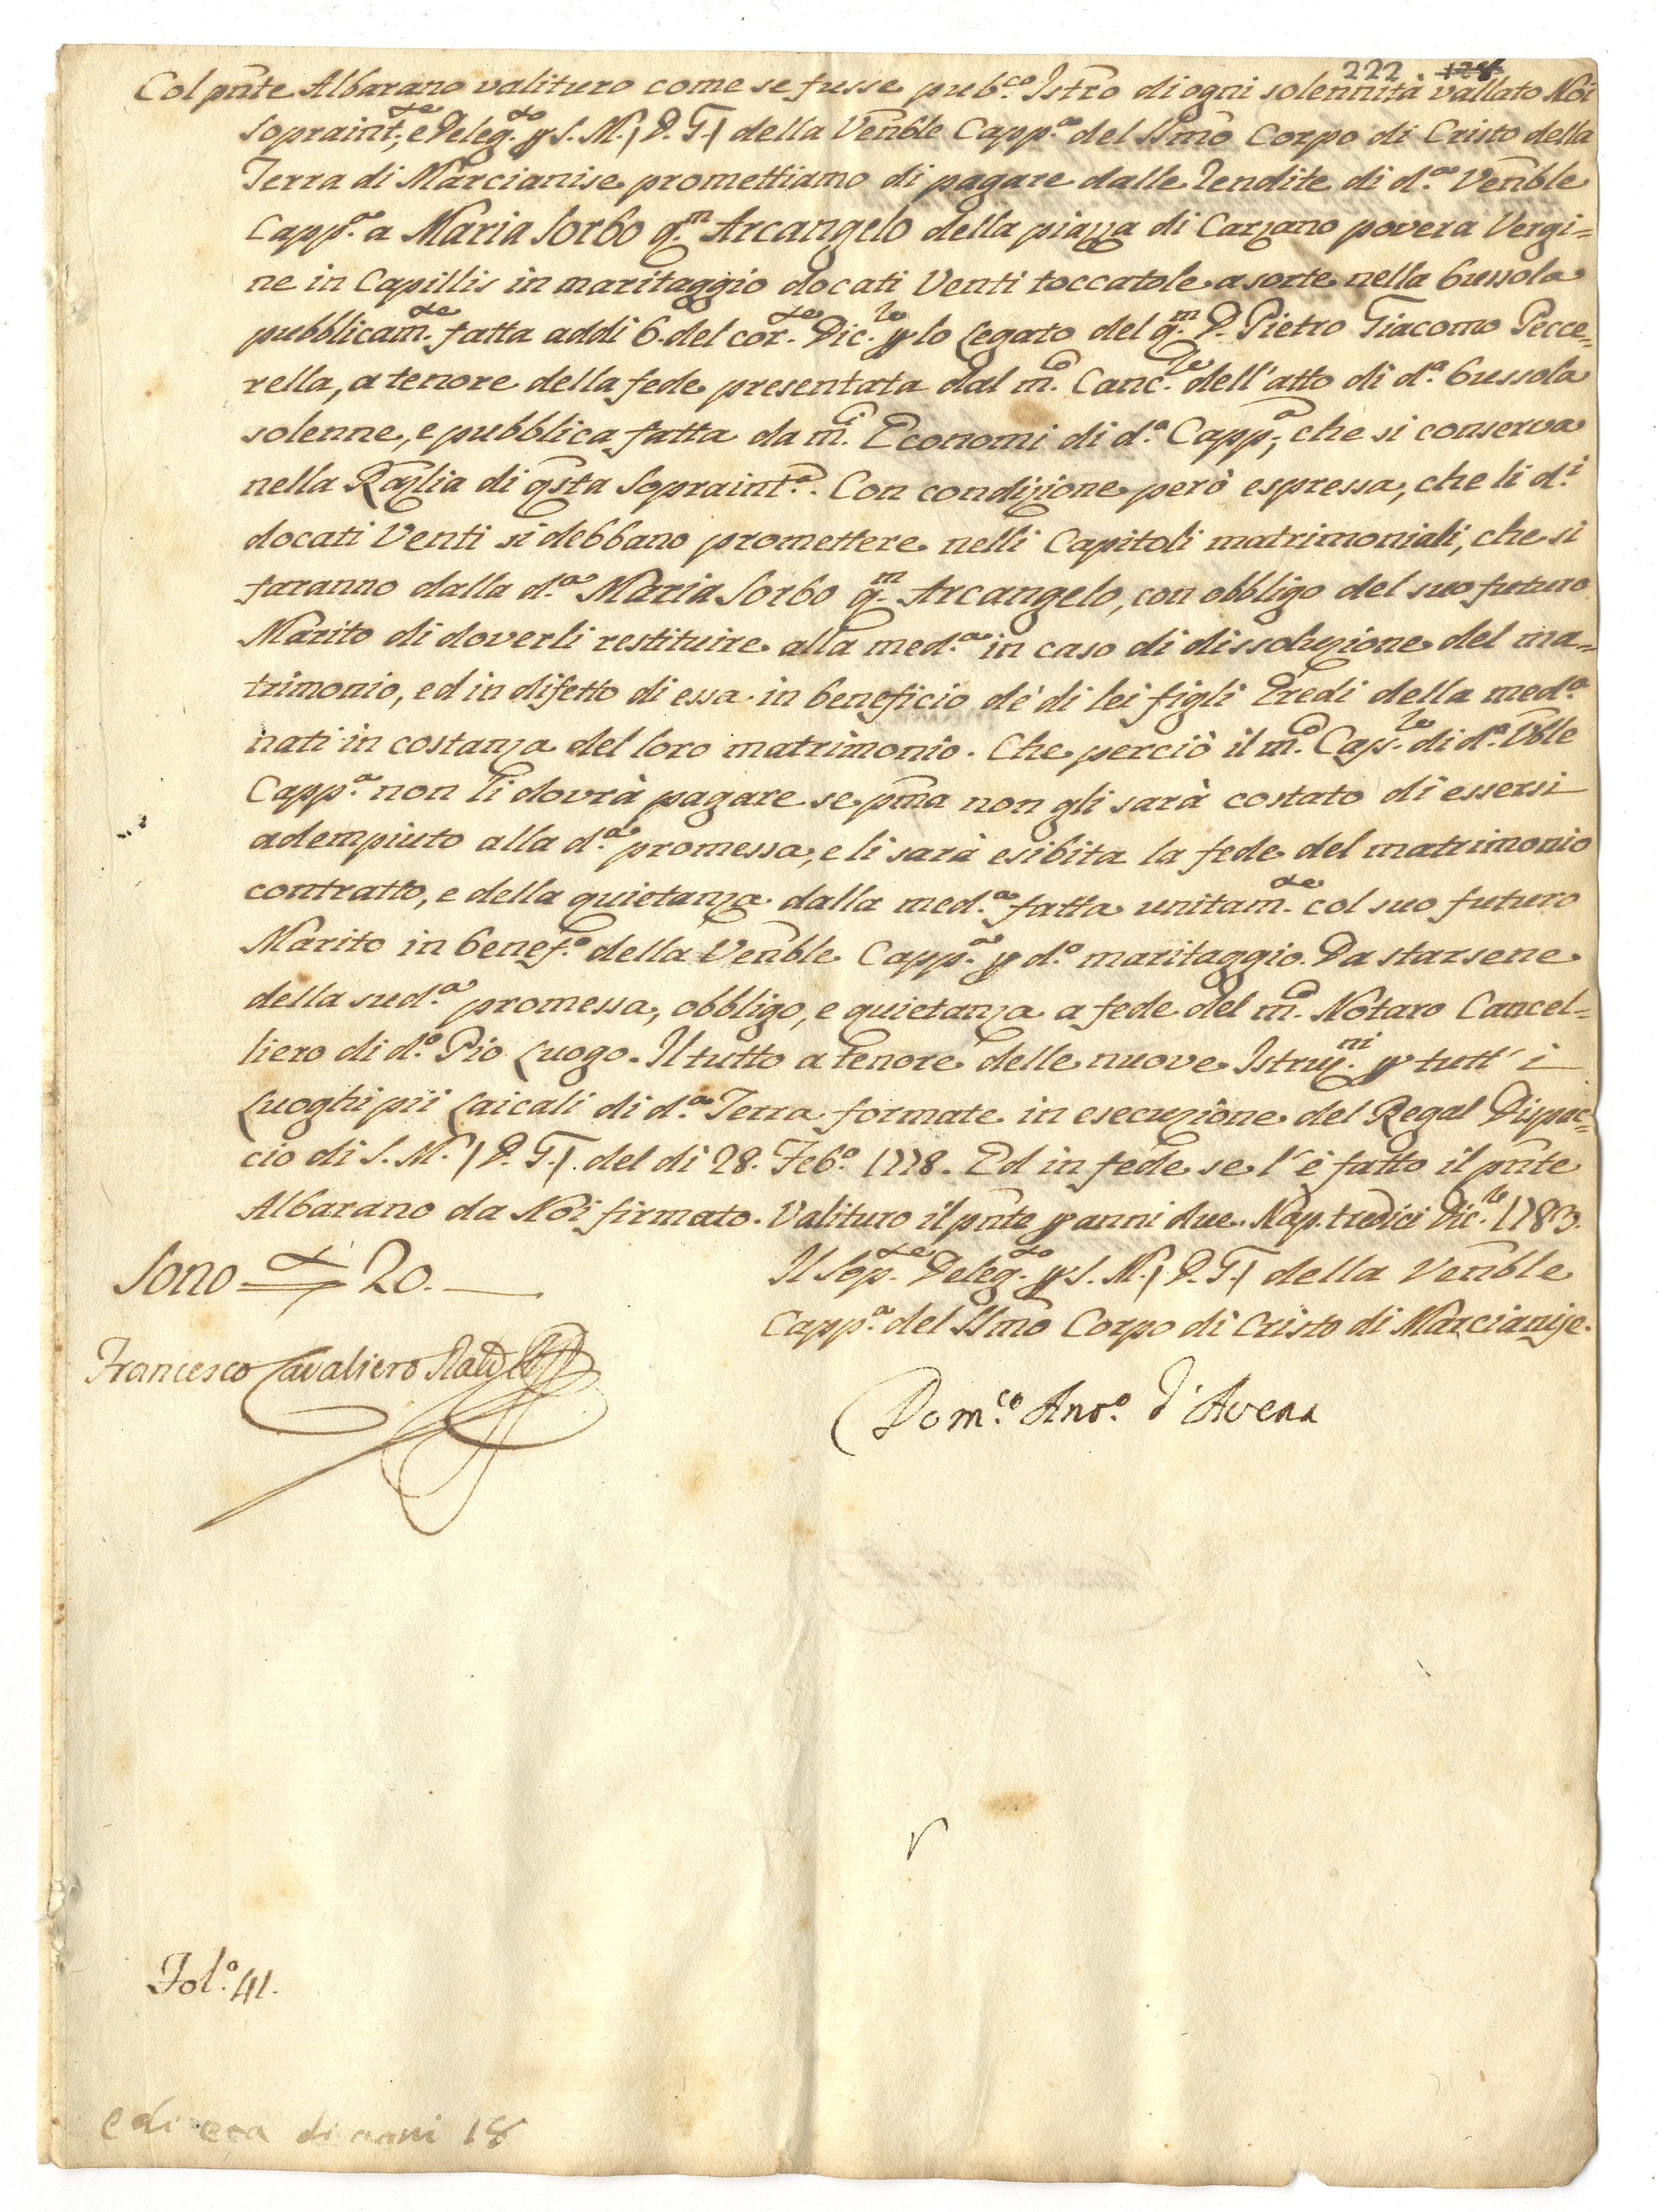 222. 128
Col pnte Albarano valituro come se fusse pub.co Istro di ogni solennità vallato Noi
Sopraint.te, e Deleg.to p S. M. (D. G.) della Venble Capp.a del SSmo Corpo di Cristo della
Terra di Marcianise promettiamo di pagare dalle rendite di d.a Venble
Capp.a a Maria Sorbo q.m Arcangelo della piazza di Carzano povera Vergi=
ne in Capillis in maritaggio docati Venti toccatole a sorte nella bussola
pubblicam.te fatta addi 6. del cor.te Dic.re p lo Legato del q.m D. Pietro Giacomo Pecce=
rella, a tenore della fede presentata dal m.o Canc.re dell'atto di d.a bussola
solenne, e pubblica fatta da m.i Economi di d.a Capp.a, che si conserva
nella Razlia di qsta Sopraint.a. Con condizione però espressa, che li d.i
docati Venti si debbano promettere nelli Capitoli matrimoniali, che si
faranno dalla d.a Maria Sorbo q.m Arcangelo, con obbligo del suo futuro
Marito di doverli restituire alla med.a in caso di dissoluzione del ma=
trimonio, ed in difetto di essa in beneficio de' di lei figli Eredi della med.a
nati in costanza del loro matrimonio. Che perciò il m.o Cas.re di d.a Vble
Capp.a non li dovrà pagare se pma non gli sarà costato di essersi
adempiuto alla d.a promessa, e li sarà esibita la fede del matrimonio
contratto, e della quietanza dalla med.a fatta unitam.te col suo futuro
Marito in benef.o della Venble Capp.a p d.o maritaggio. Da starsene
della sud.a promessa, obbligo, e quietanza a fede del m.o Notaro Cancel=
liero di d.o Pio Luogo. Il tutto a tenore delle nuove Istruz.ni p tutt' i
Luoghi pii Laicali di d.a Terra formate in esecuzione del Regal Dispac=
cio di S. M. (D. G.) del di 28. Feb.o 1778. Ed in fede se l'è fatto il pnte
Albarano da Noi firmato. Valituro il pnte p anni due. Nap. tredici Dic.re 1783.
Sono 20.
Il Sop.te Deleg.to p S. M. (D. G.) della Venble
Capp.a del SSmo Corpo di Cristo di Marcianise.
Francesco Cavaliero
Dom.co Anto.o d'Avena
Fol.o 41.
e di era di anni 18